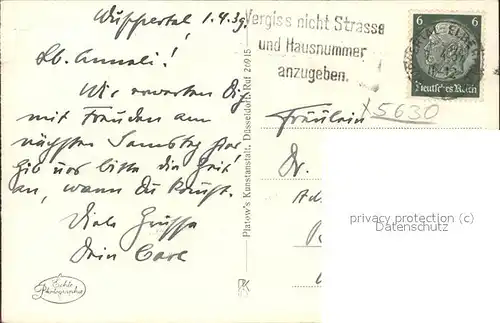 Wuppertal, 1.4.39.
Lb. Annali!
Wir erwarten Dich
mit Freuden am
nächsten Samstag hier
Gib uns bitte die Zeit
an, wann Du kommst.
Viele Grüsse
Dein Carl
Echte
Photographie
Platow's Kunstanstalt, Düsseldorf, Ruf 26915
Vergiss nicht Strasse
und Hausnummer
anzugeben.
6 6
Deutsches Reich
X 5630
Fräulein
Dr.
privacy protection (c)
Datenschutz